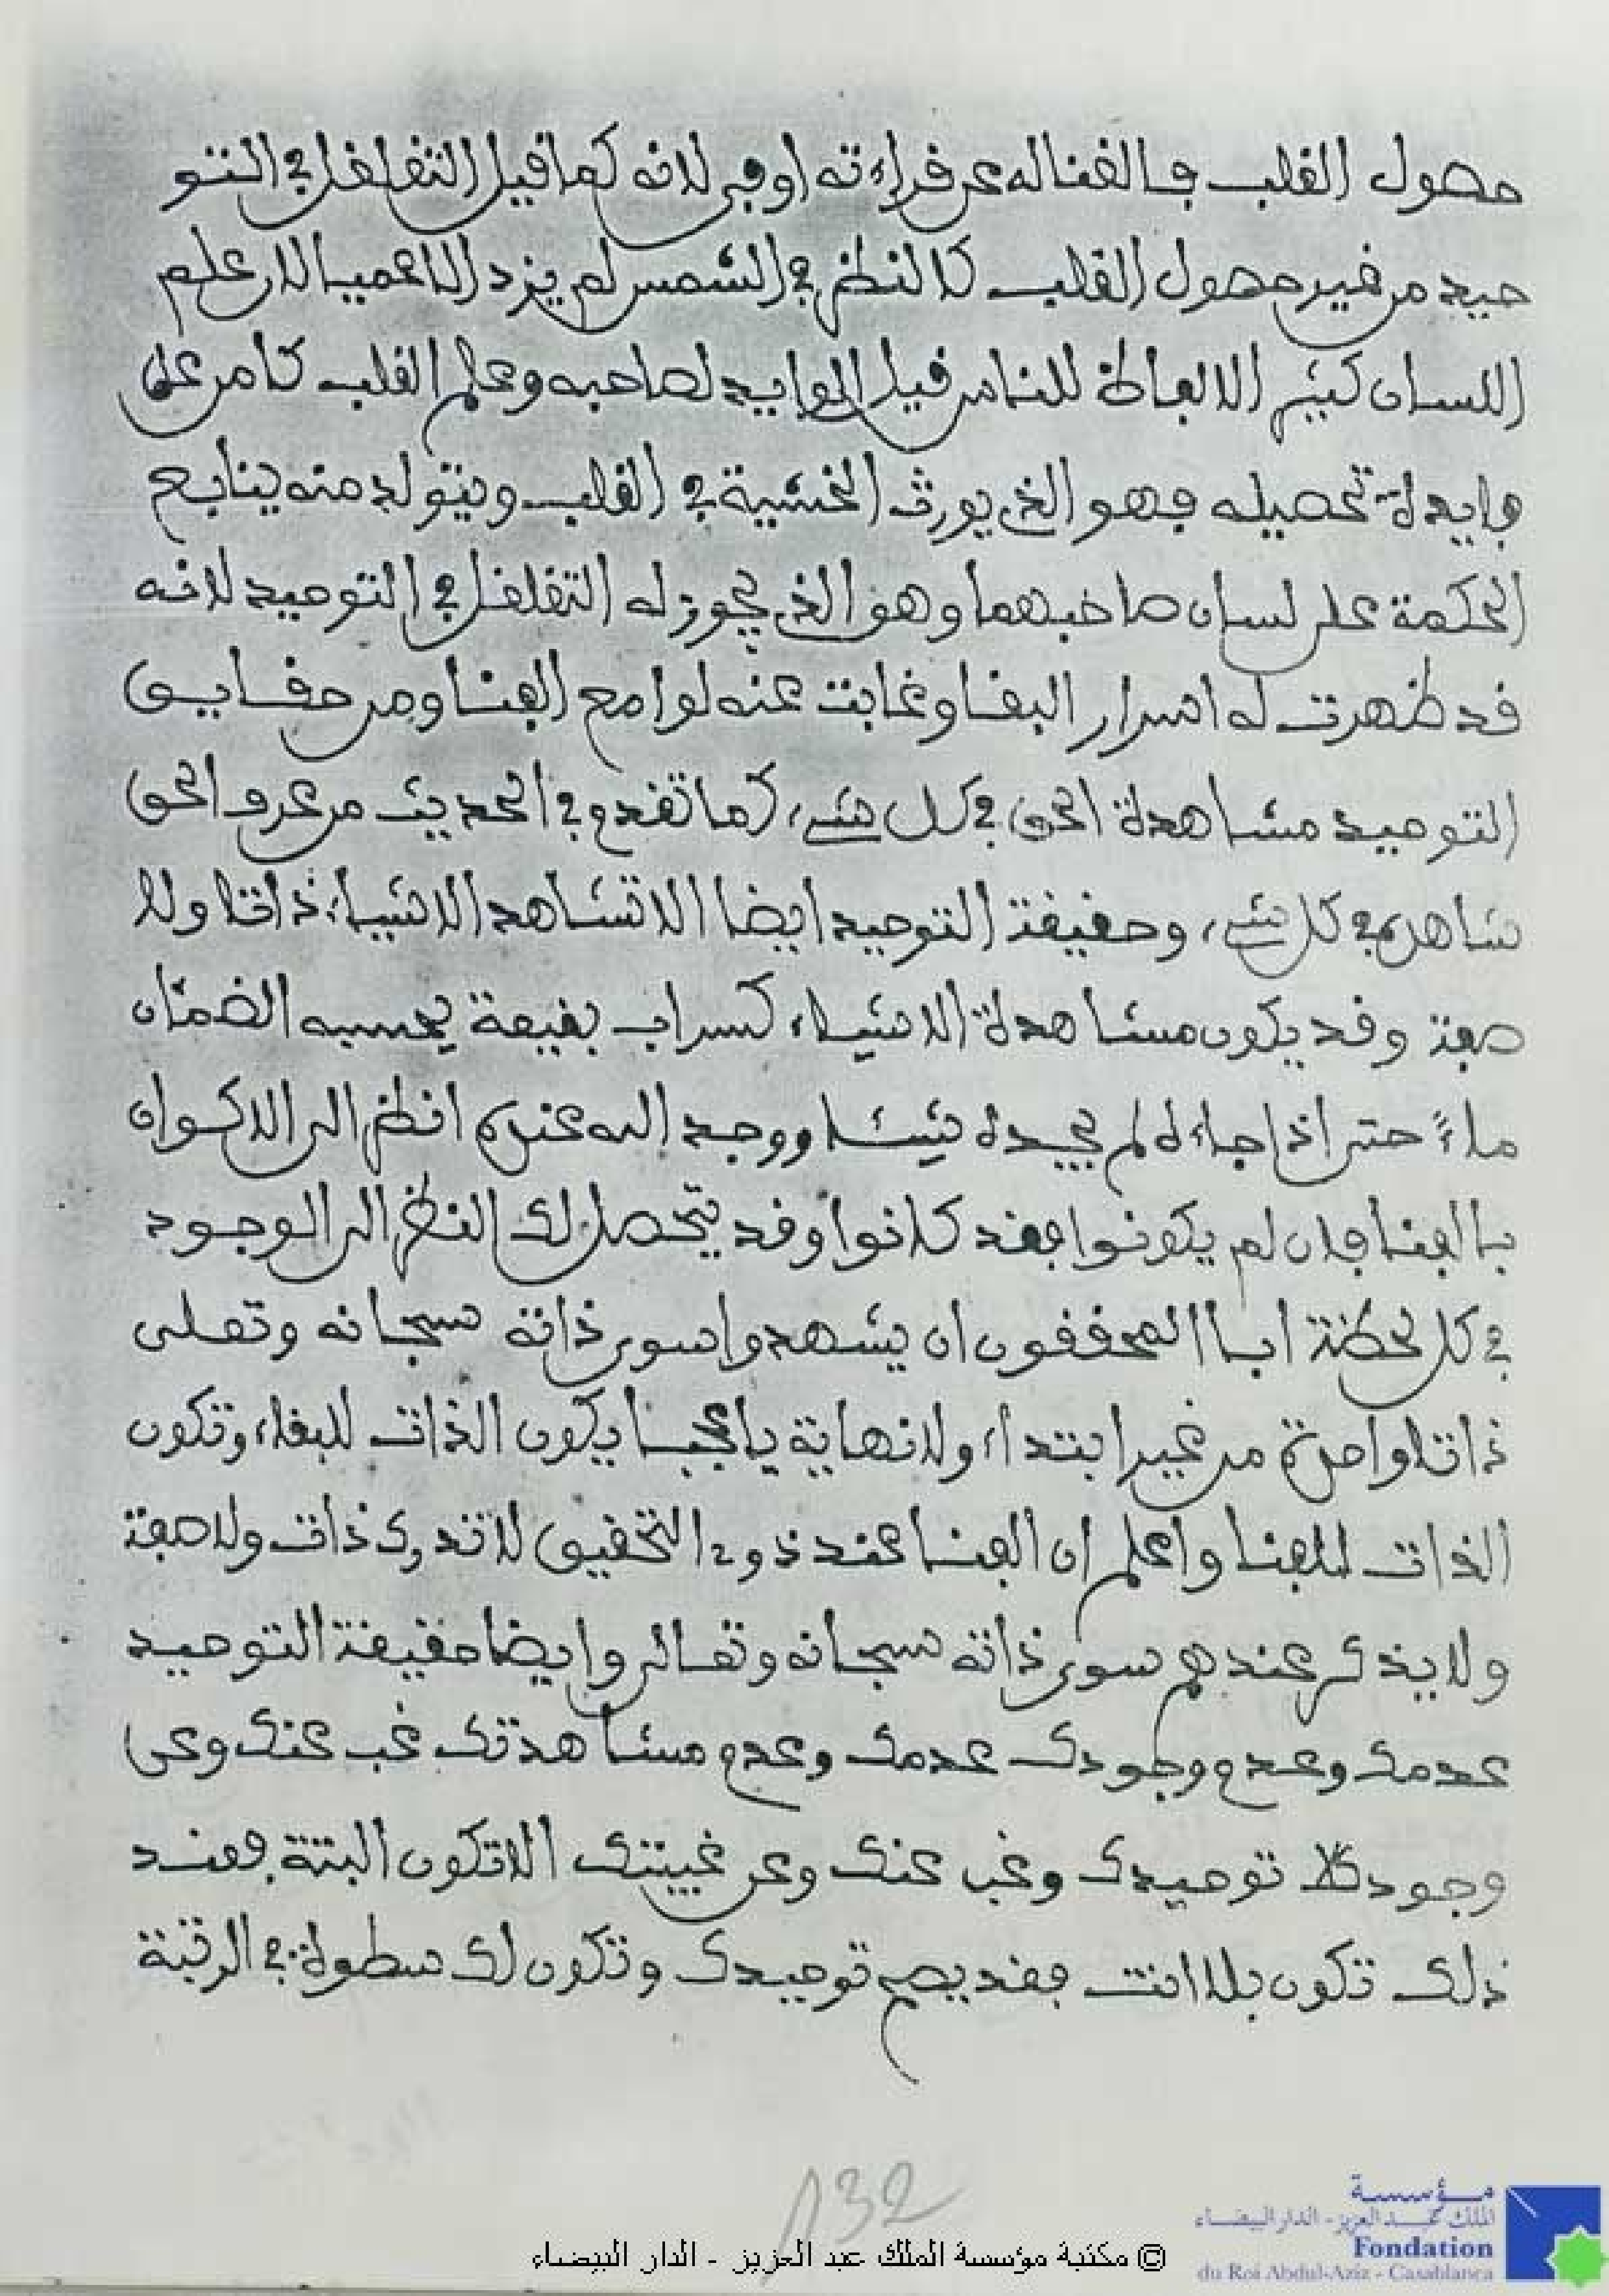 حصول القلب فالغنا له عن قراءته اوفى لانه كما قيل التغلغل في التو
حيد من غير حصول القلب كالنظر في الشمس لم يزد الا عميا لان علم
اللسان كثير الالفاظ للناس قليل الفوايد لصاحبه وعلم القلب كامن على
فايدة تحصيله فهو الذي يورث الخشية في القلب ويتولد منه ينابيع
الحكمة على لسان صاحبهما وهو الذي يجوز له التغلغل في التوحيد لانه
قد ظهرت له اسرار البقا وغابت عنه لوامع الفنا ومن حقايق
التوحيد مشاهدة الحق في كل شيء كما تقدم في الحديث من عرف الحق
شاهده في كل شيء وحقيقة التوحيد ايضا الا تشاهد الاشياء ذاتا ولا
صفة وقد يكون مشاهدة الاشياء كسراب بقيعة يحسبه الضمئان
ماءً حتى اذا جاءه لم يجده شيئا ووجد الله عنده انظر الى الاكوان
باالفنا فان لم يكونوا فقد كانوا وقد يتحصل لك النظر الى الوجود
في كل لحظة ابا المحققون ان يشهدوا سوى ذاته سبحانه وتعلى
ذاتا واحدة من غير ابتداء ولا نهاية يا عجبا يكون الذات للبقاء وتكون
الذات للفنا واعلم ان الفنا عند ذوي التحقيق لا تدرك ذات ولا صفة
ولا يذكر عندهم سوى ذاته سبحانه وتعالى وايضا حقيقة التوحيد
عدمك وعدم وجودك عدمك وعدم مشاهدتك غب عنك وعن
وجودك لا توحيدك وغب عنك وعن غيبتك الا تكون البتة فعند
ذلك تكون بلا انت فقد يصح توحيدك وتكون لك سطوة في الرتبة
132
© مكتبة مؤسسة الملك عبد العزيز - الدار البيضاء
مؤسسة
الملك عبد العزيز - الدار البيضاء
Fondation
du Roi Abdul-Aziz - Casablanca